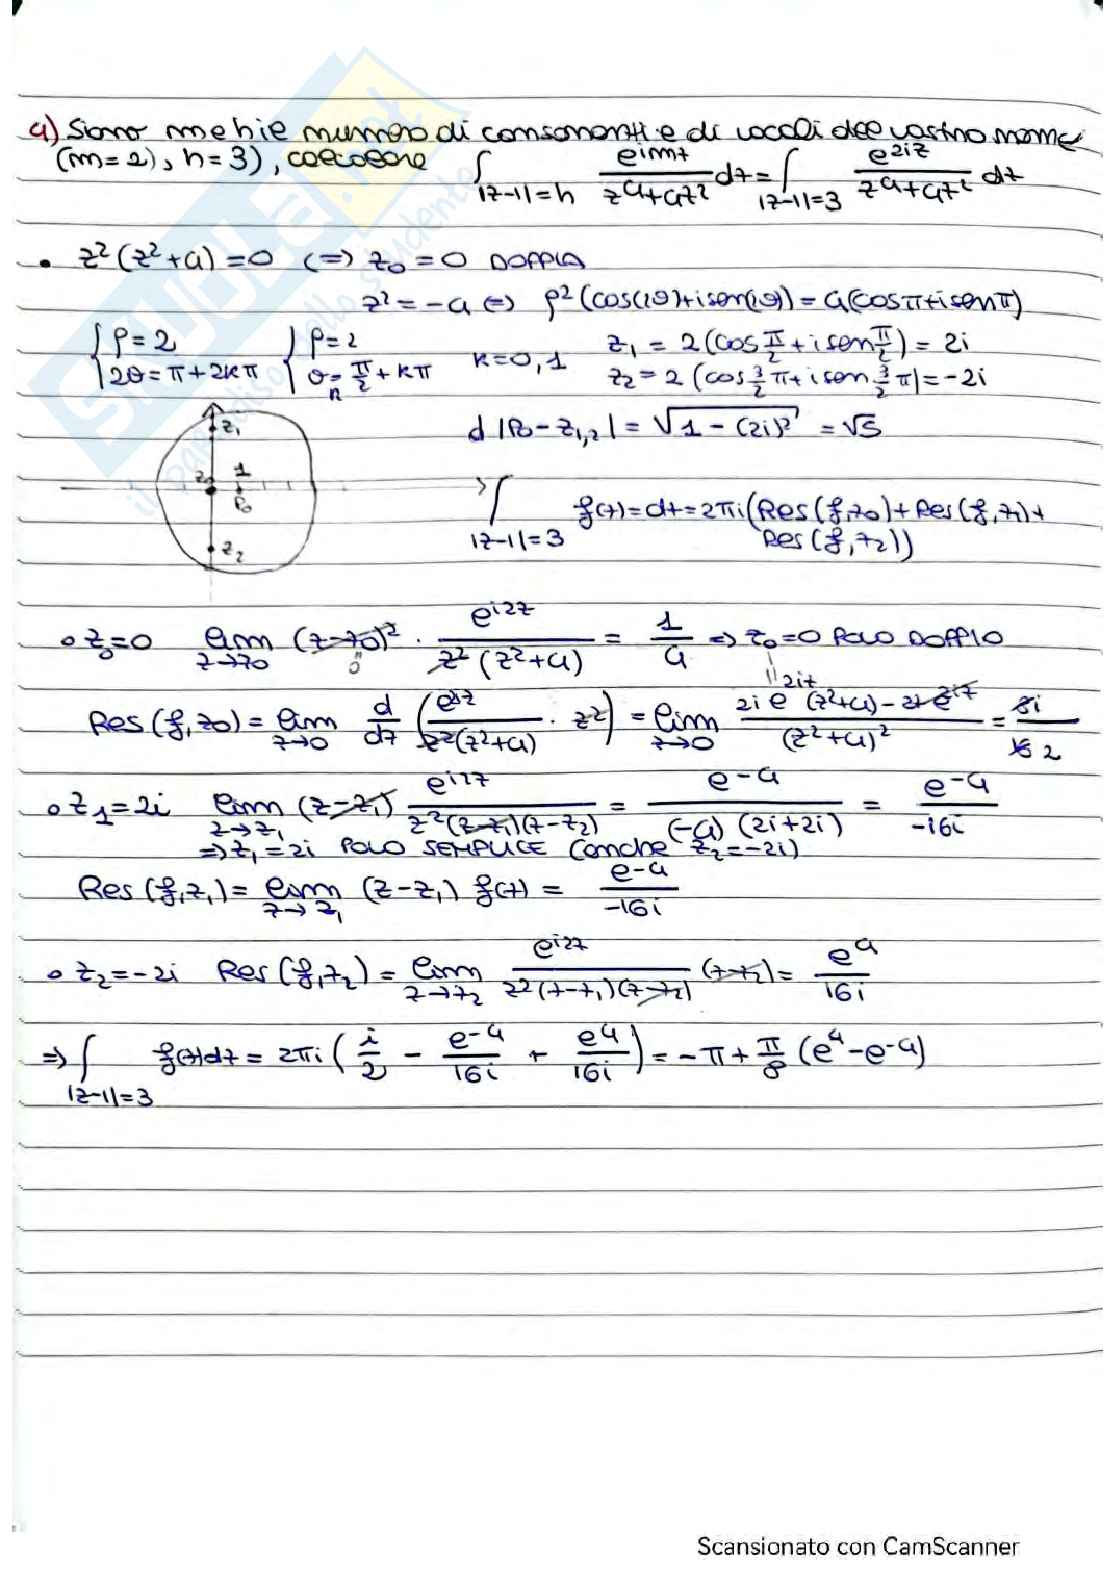 4) Siano m e h i e numero di consonanti e di vocali del vostro nome
(m=2), h=3), calcolare ∫_{|z-1|=h} e^{imz}/(z^4+4z^2) dz = ∫_{|z-1|=3} e^{2iz}/(z^4+4z^2) dz
• z²(z²+4)=0 (=) z₀=0 DOPPIA
z²=-4 (=) ρ²(cos(2θ)+isen(2θ))=4(cosπ+isenπ)
{ρ=2 {ρ=2 k=0,1 z₁ = 2(cos π/2 + i sen π/2) = 2i
{2θ=π+2kπ {θ=π/2+kπ z₂=2(cos 3/2 π+ i sen 3/2 π)=-2i
z₁ d |P₀-z₁,₂| = √(1-(2i)²) = √5
z₀ 1
P₀ ∫_{|z-1|=3} f(z)=dz=2πi(Res(f,z₀)+Res(f,z₁)+
z₂ Res(f,z₂))
∘ z₀=0 lim_{z→z₀} (z-z₀)² · e^{i2z}/(z²(z²+4)) = 1/4 ⇒ z₀=0 POLO DOPPIO
0
Res(f,z₀) = lim_{z→0} d/dz (e^{i2z}/(z²(z²+4)) · z²) = lim_{z→0} (2i e^{2iz}(z²+4)-2z e^{2iz})/(z²+4)² = 8i/16 2
∘ z₁=2i lim_{z→z₁} (z-z₁) e^{i2z}/(z²(z-z₁)(z-z₂)) = e^{-4}/((-4)(2i+2i)) = e^{-4}/-16i
⇒ z₁=2i POLO SEMPLICE (anche z₂=-2i)
Res(f,z₁) = lim_{z→z₁} (z-z₁) f(z) = e^{-4}/-16i
∘ z₂=-2i Res(f,z₂) = lim_{z→z₂} e^{i2z}/(z²(z-z₁)(z-z₂)) (z-z₂) = e^4/16i
⇒ ∫_{|z-1|=3} f(z)dz = 2πi(i/2 - e^{-4}/16i + e^4/16i) = -π + π/8 (e^4-e^{-4})
Scansionato con CamScanner